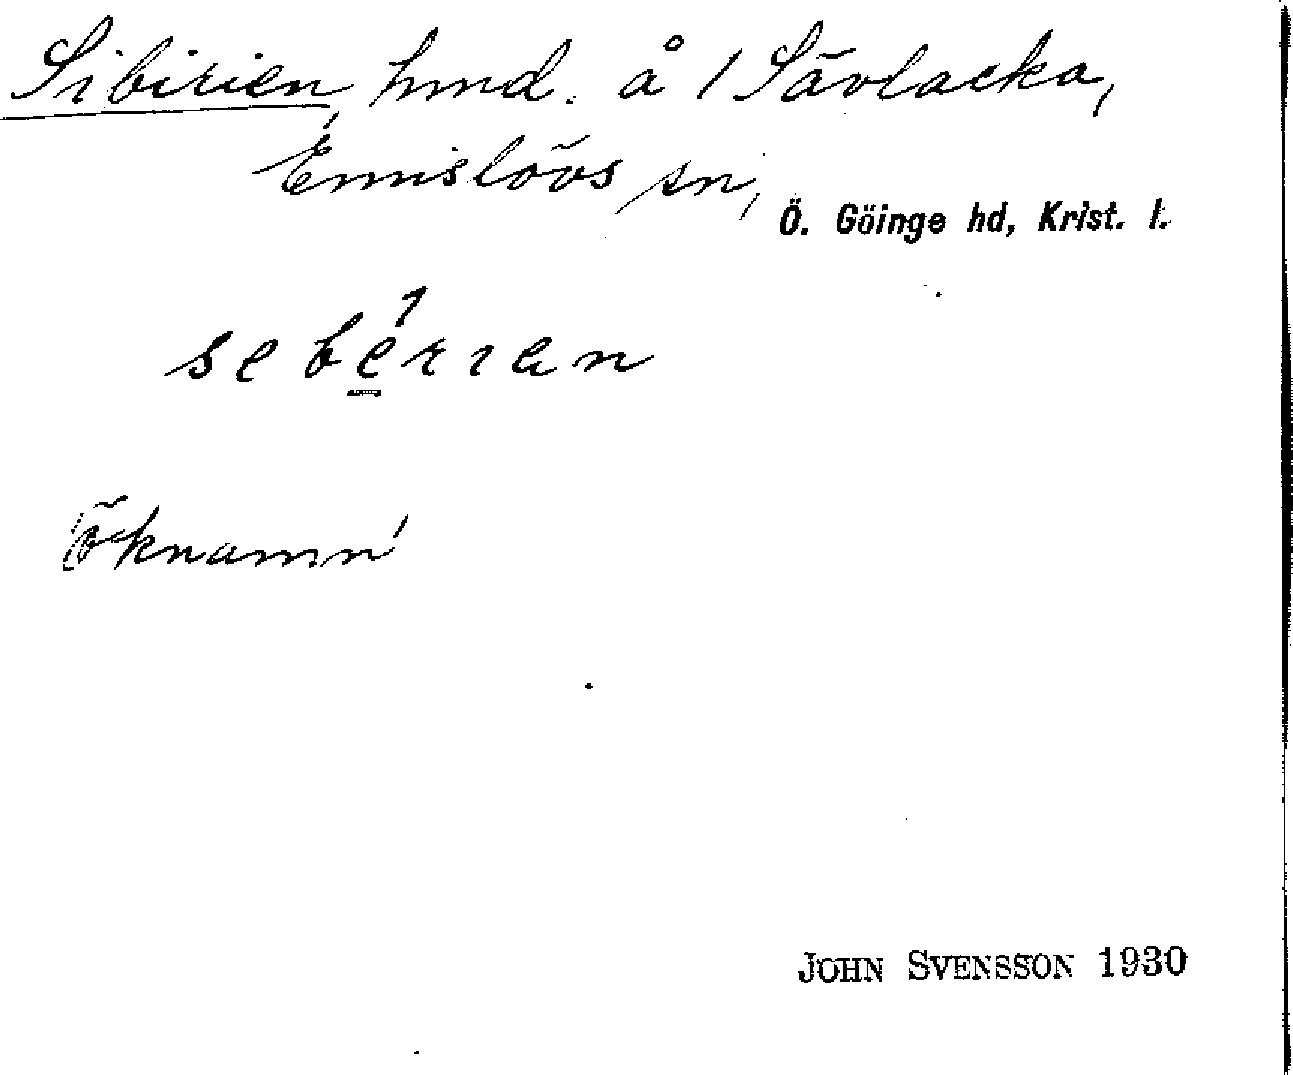 Sibirien, hmd. å 1 Sävlacka,
Emislövs sn,
Ö. Göinge hd, Krist. l.
seberian
öknamn
JOHN SVENSSON 1930